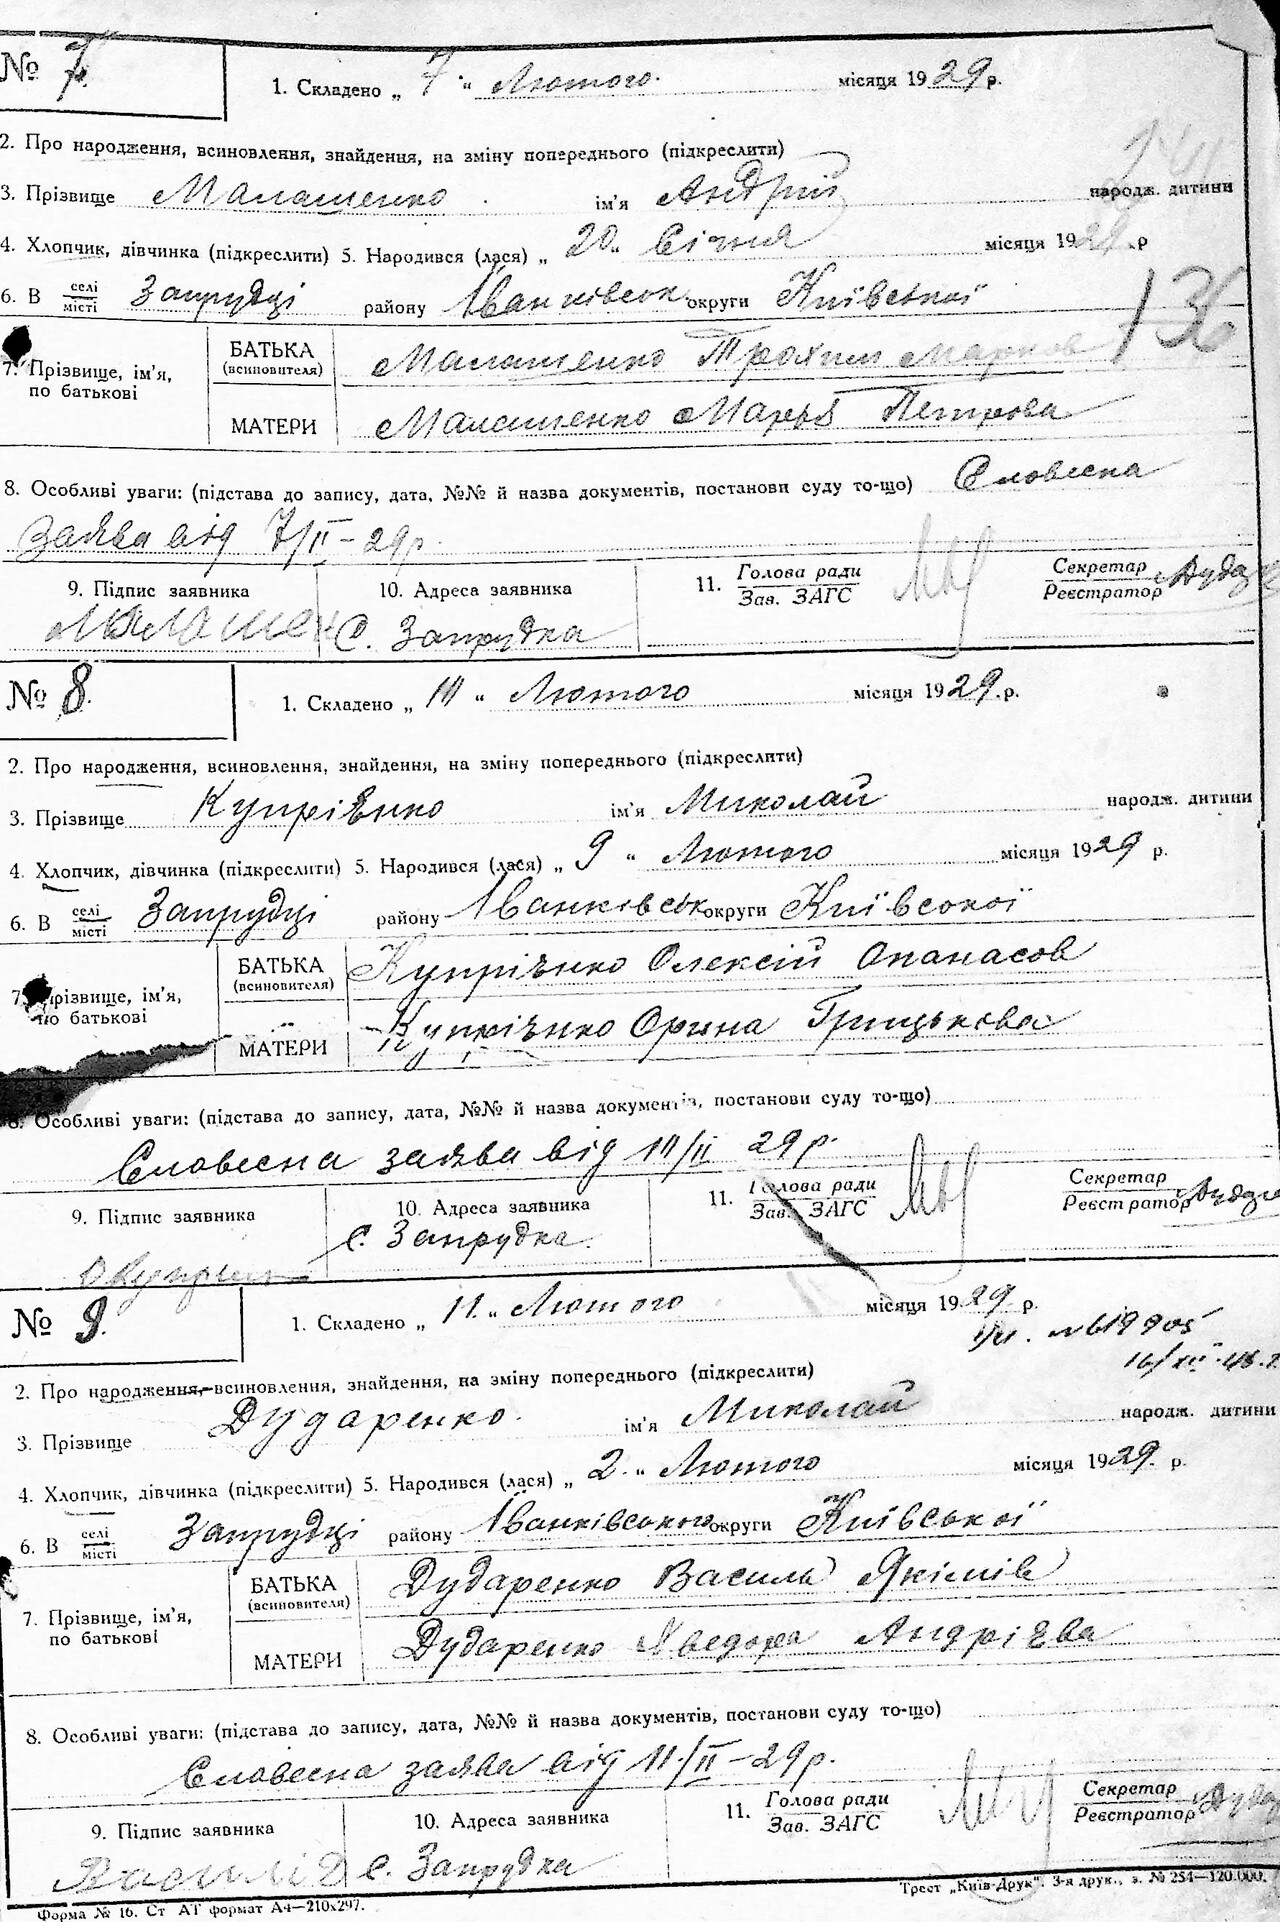 № 7. 1. Складено „ 7 " Лютого. місяця 1929 р.
2. Про народження, всиновлення, знайдення, на зміну попереднього (підкреслити)
3. Прізвище Малашенко ім'я Андрій народж. дитини
4. Хлопчик, дівчинка (підкреслити) 5. Народився (лася) „ 20 " Січня місяця 1929 р
6. В селі/місті Запрудці району Іванківськ округи Київської
136
7. Прізвище, ім'я, по батькові
БАТЬКА (всиновителя) Малашенко Трохим Марков
МАТЕРИ Малашенко Марья Петрова
8. Особливі уваги: (підстава до запису, дата, №№ й назва документів, постанови суду то-що) Словесна
заява від 7/II – 29 р.
9. Підпис заявника 10. Адреса заявника 11. Голова ради/Зав. ЗАГС Секретар/Реєстратор
Малашен с. Запрудка
№ 8. 1. Складено „ 11 " Лютого місяця 1929 р.
2. Про народження, всиновлення, знайдення, на зміну попереднього (підкреслити)
3. Прізвище Купрієнко ім'я Миколай народж. дитини
4. Хлопчик, дівчинка (підкреслити) 5. Народився (лася) „ 9 " Лютого місяця 1929 р.
6. В селі/місті Запрудці району Іванківськ округи Київської
7. Прізвище, ім'я, по батькові
БАТЬКА (всиновителя) Купрієнко Олексій Опанасов
МАТЕРИ Купрієнко Орина Грицькова
8. Особливі уваги: (підстава до запису, дата, №№ й назва документів, постанови суду то-що)
Словесна заява від 11/II 29 р.
9. Підпис заявника 10. Адреса заявника 11. Голова ради/Зав. ЗАГС Секретар/Реєстратор
с. Запрудка.
№ 9. 1. Складено „ 11. " Лютого місяця 1929 р.
№619905
16/XII-48
2. Про народження, всиновлення, знайдення, на зміну попереднього (підкреслити)
3. Прізвище Дударенко. ім'я Миколай народж. дитини
4. Хлопчик, дівчинка (підкреслити) 5. Народився (лася) „ 2. " Лютого місяця 1929. р.
6. В селі/місті Запрудці району Іванківського округи Київської
7. Прізвище, ім'я, по батькові
БАТЬКА (всиновителя) Дударенко Василь Якімів
МАТЕРИ Дударенко Хведора Андрієва
8. Особливі уваги: (підстава до запису, дата, №№ й назва документів, постанови суду то-що)
Словесна заява від 11/II – 29 р.
9. Підпис заявника 10. Адреса заявника 11. Голова ради/Зав. ЗАГС Секретар/Реєстратор
с. Запрудка
Форма № 16. Ст АТ формат А4—210х297. Трест „Київ-Друк". 3-я друк., з. № 254—120.000.